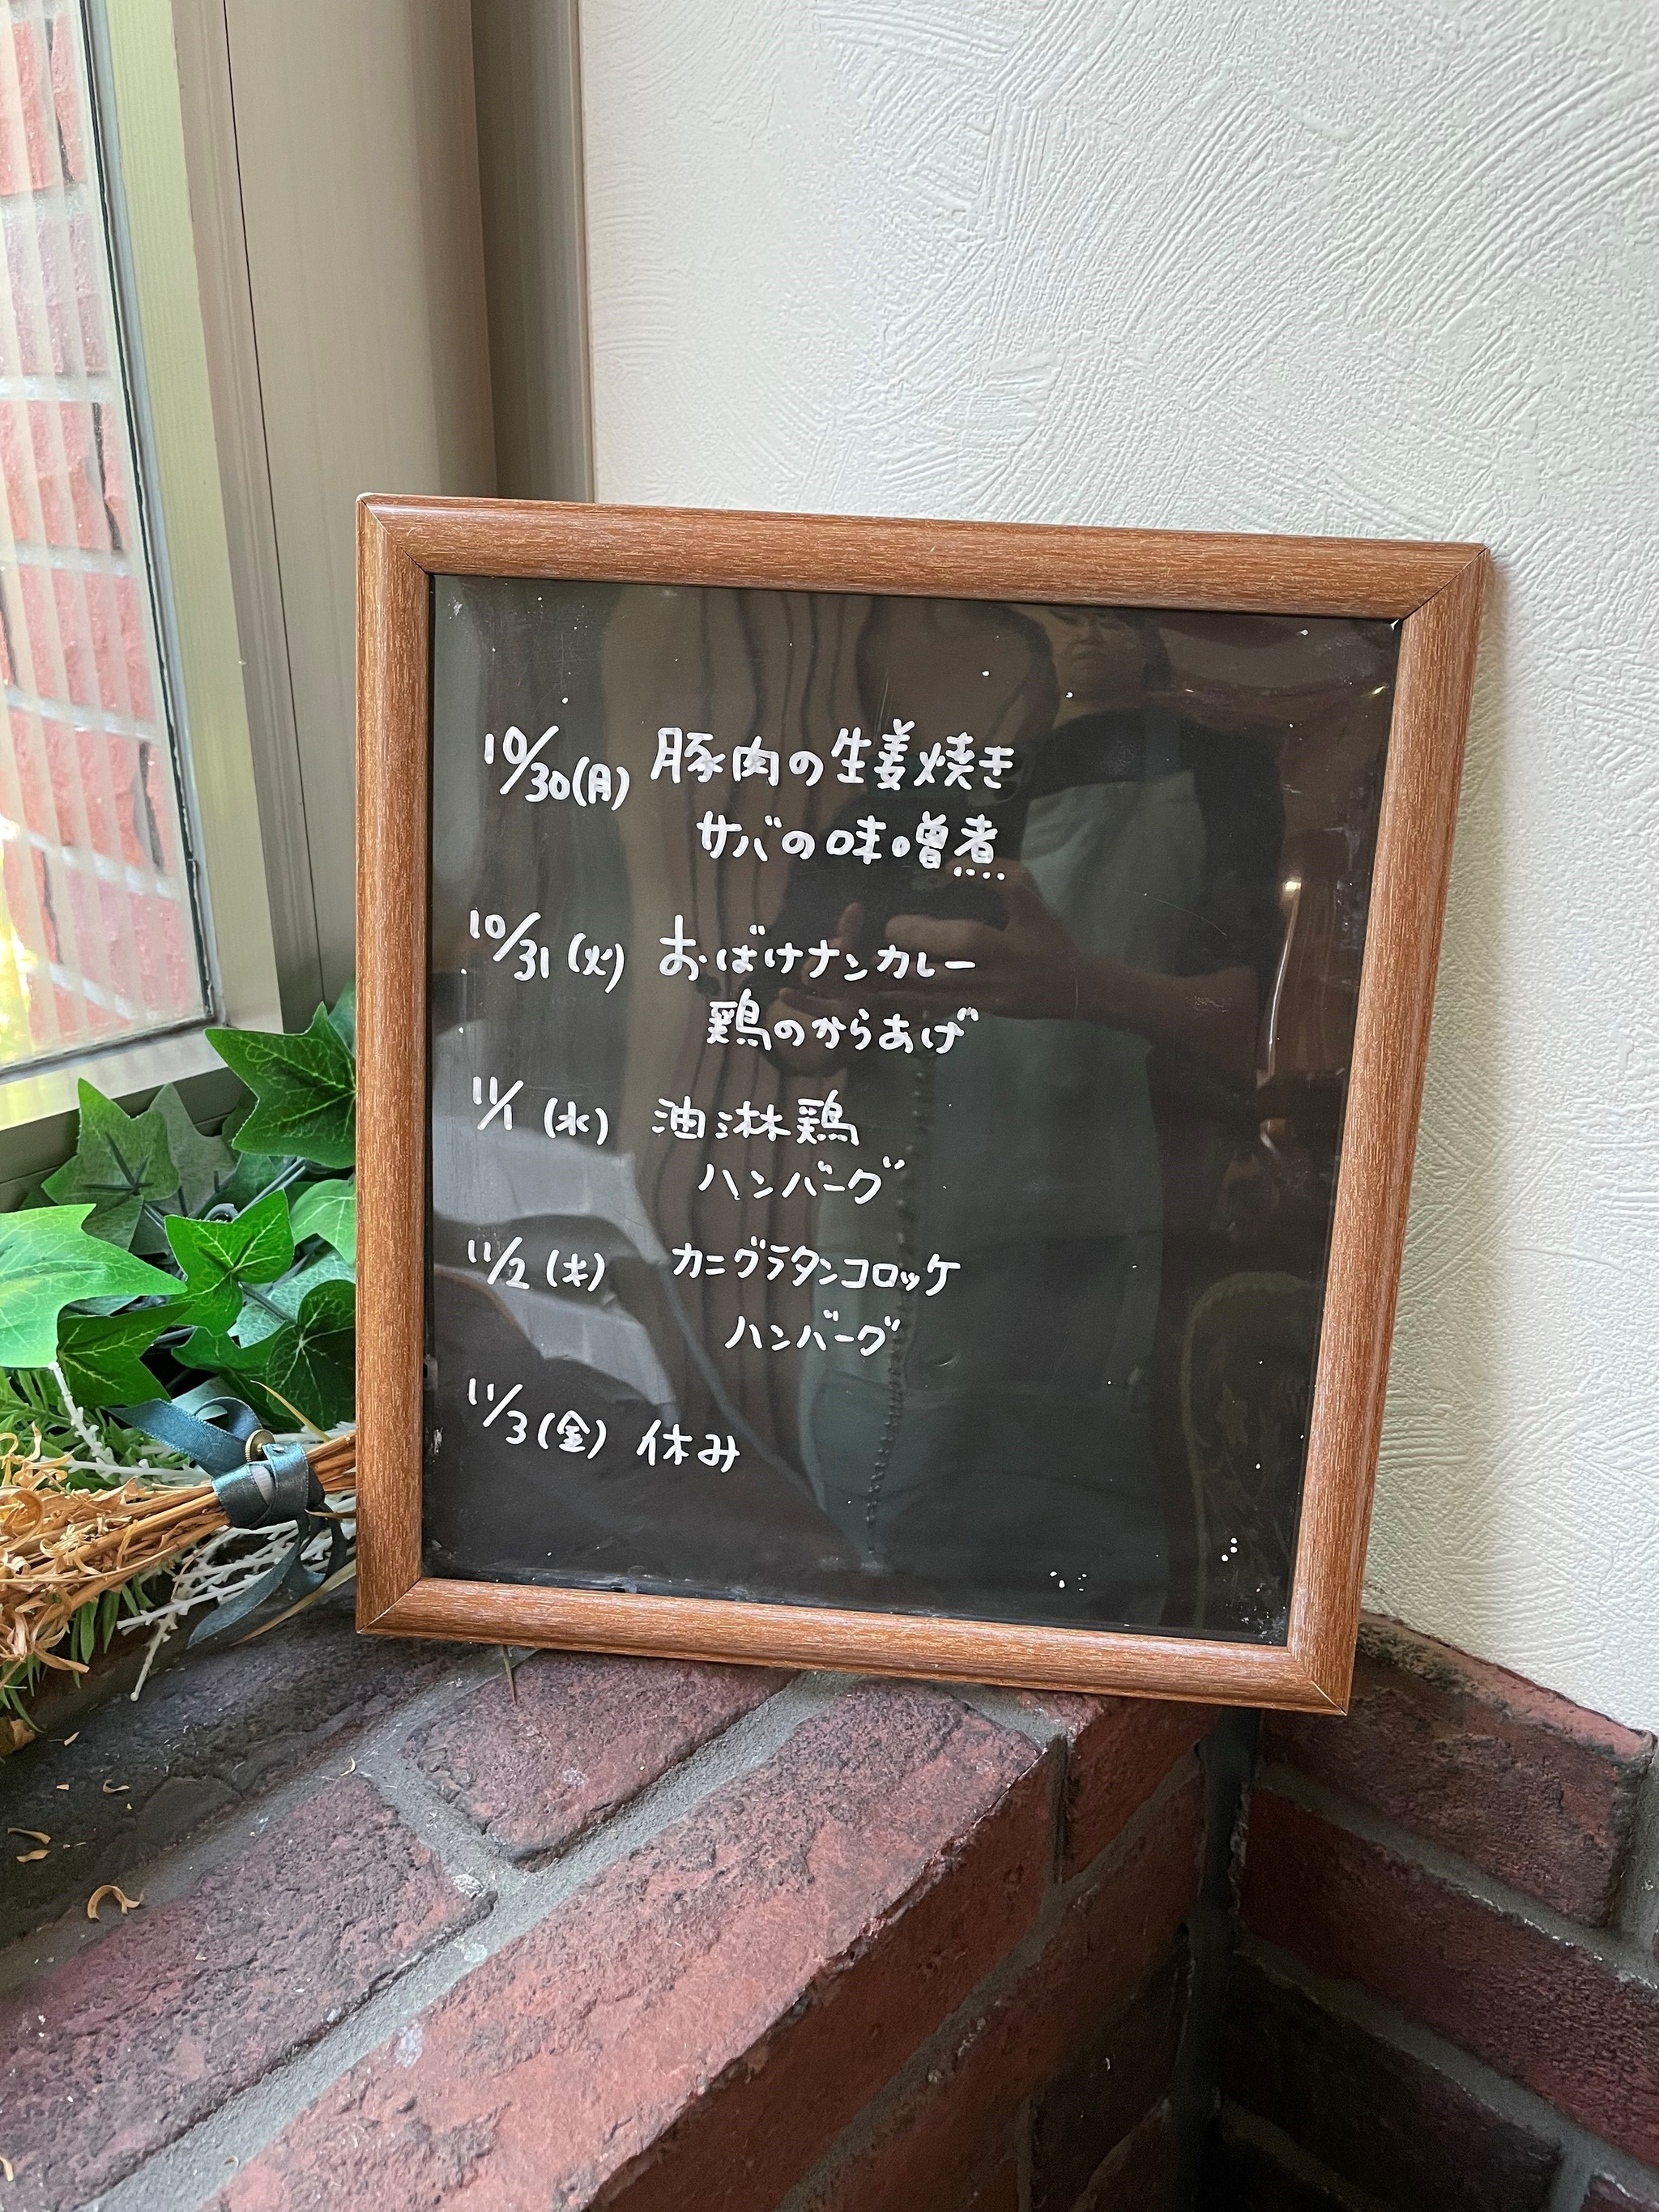 10/30(月) 豚肉の生姜焼き
サバの味噌煮
10/31(火) おばけナンカレー
鶏のからあげ
11/1(水) 油淋鶏
ハンバーグ
11/2(木) カニグラタンコロッケ
ハンバーグ
11/3(金) 休み